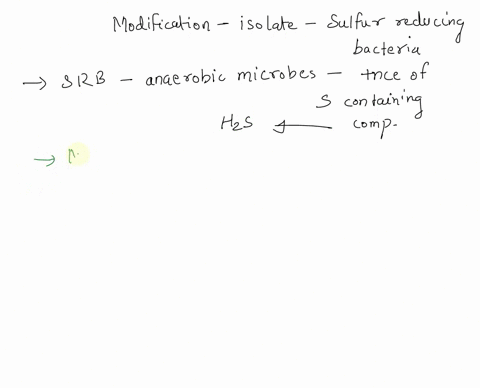 Modification - isolate - Sulfur reducing
bacteria
→ SRB - anaerobic microbes - +nce of
S containing
H2S ← comp.
→